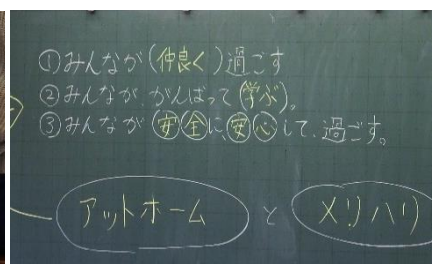 ①みんなが(仲良く)過ごす
②みんなが、がんばって(学ぶ)。
③みんなが安全に安心して、過ごす。
アットホームとメリハリ